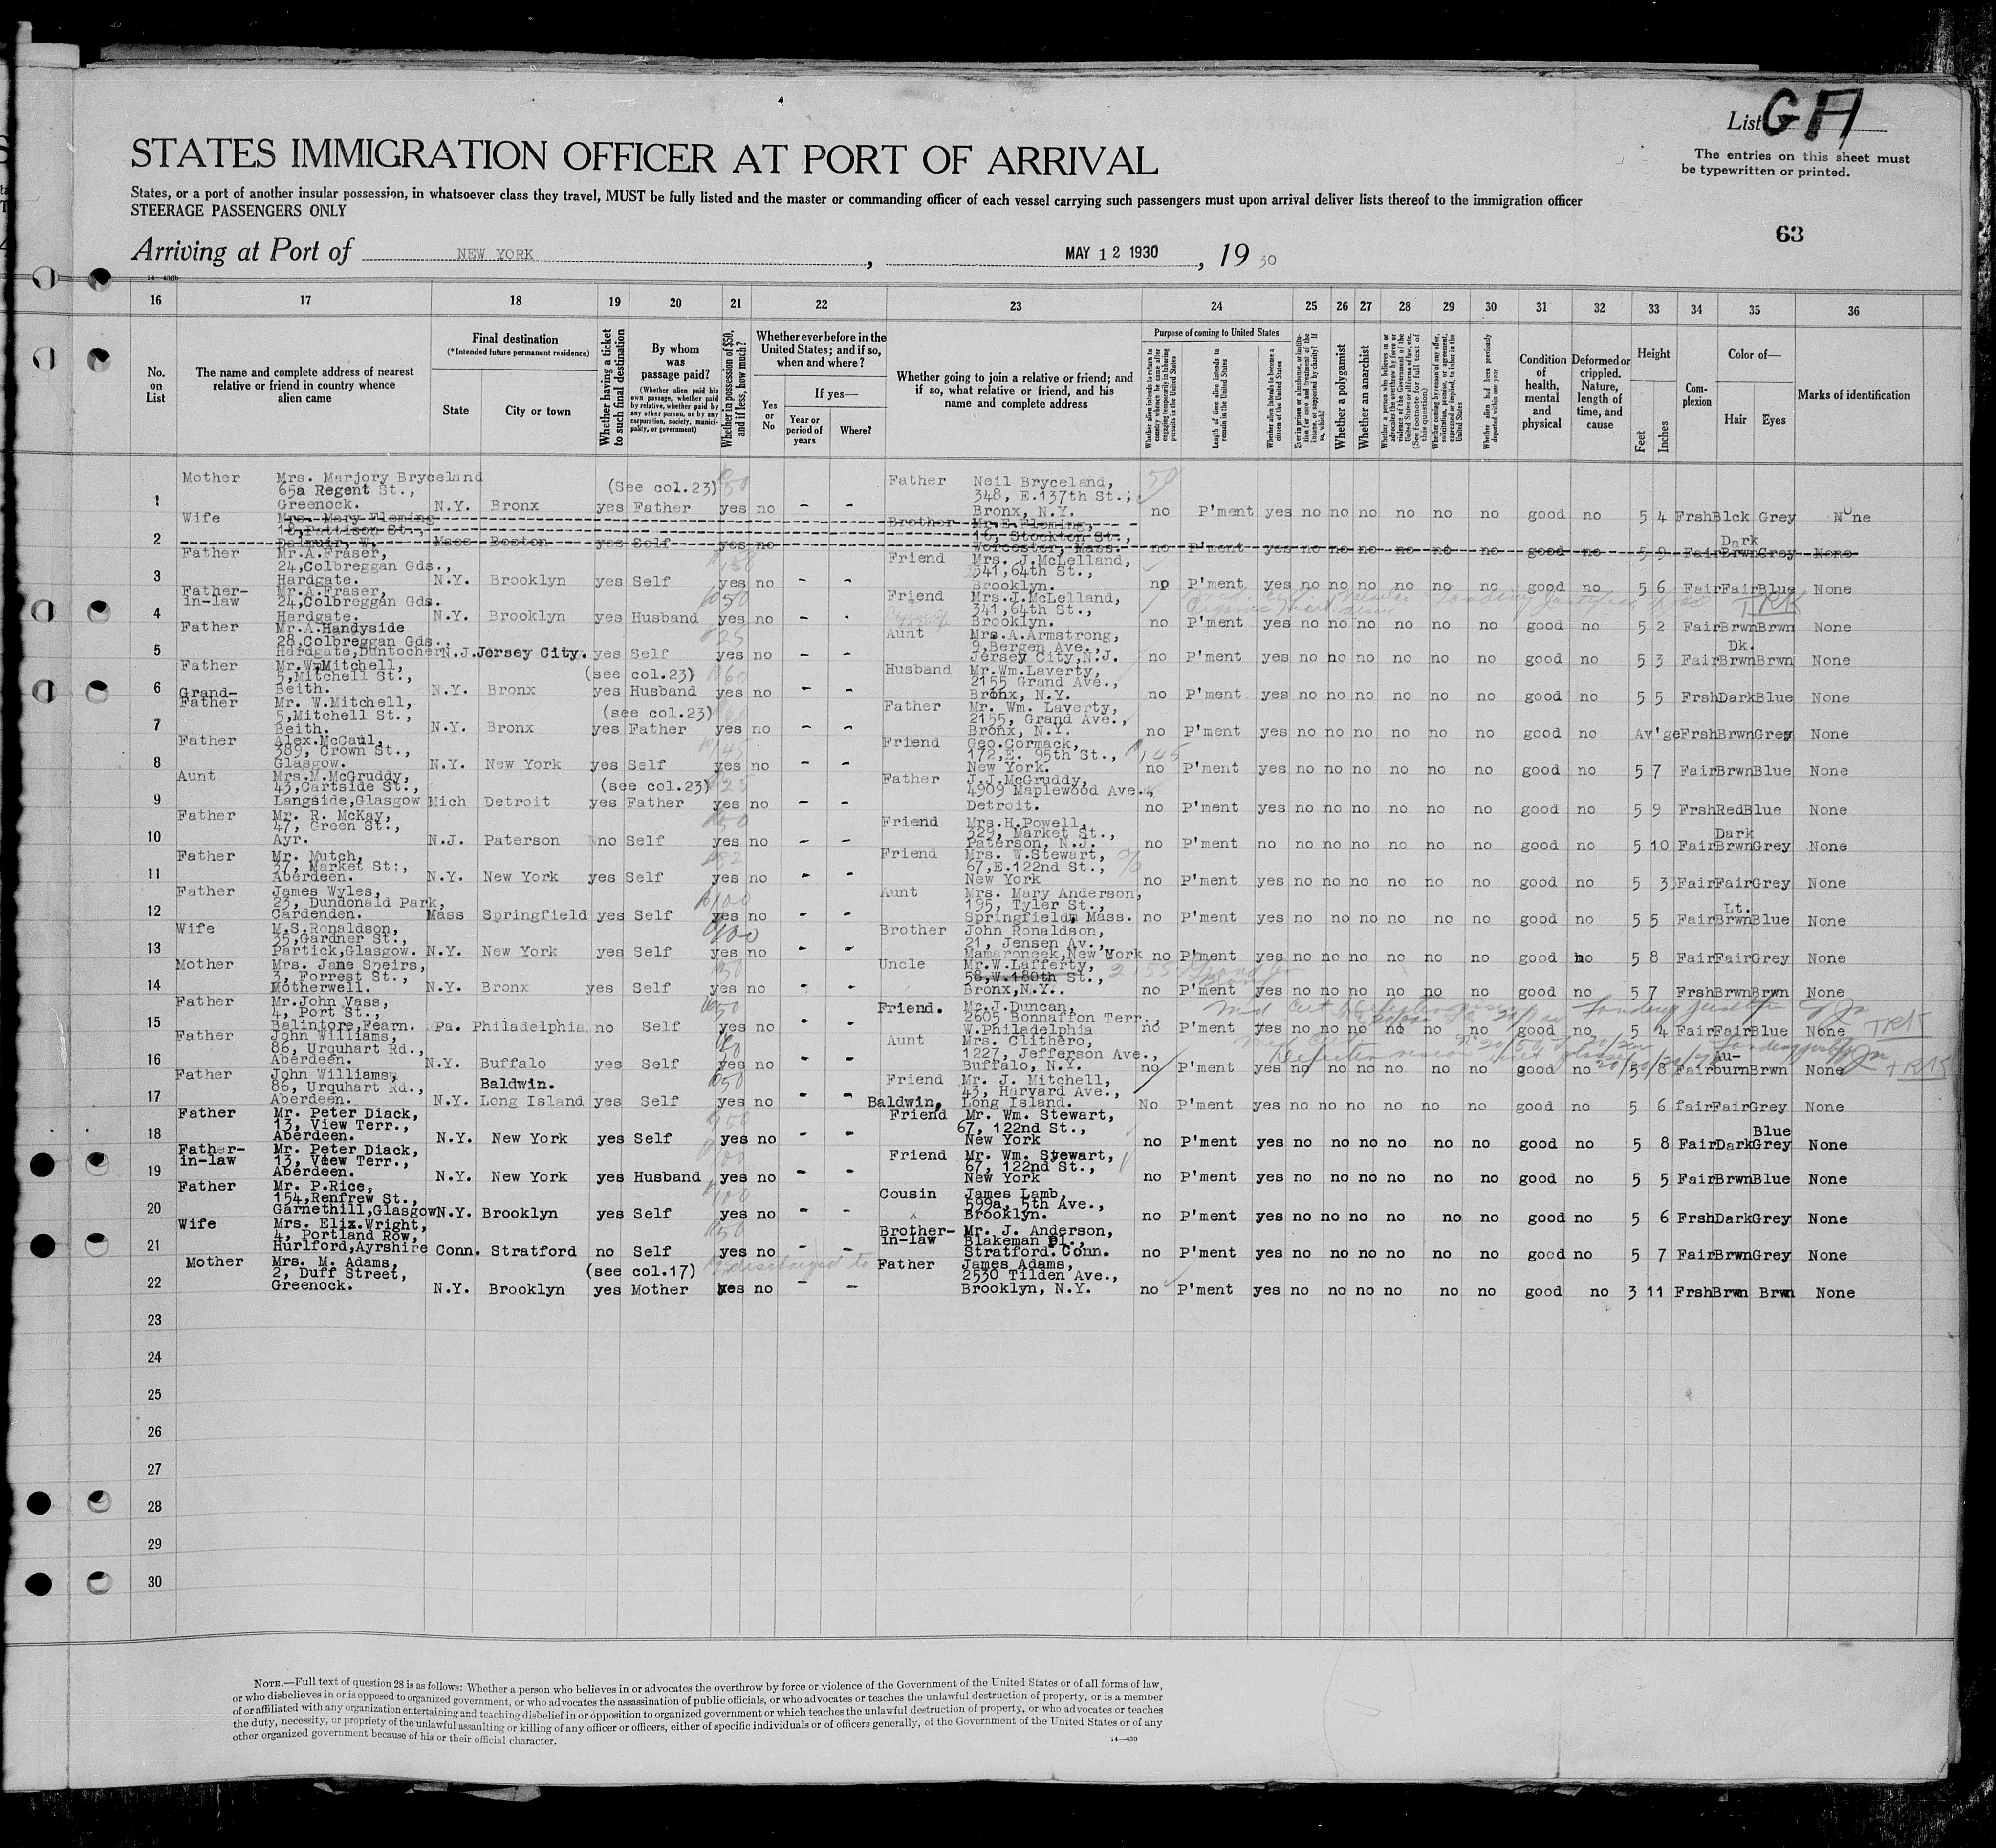 List GA
The entries on this sheet must
be typewritten or printed.
STATES IMMIGRATION OFFICER AT PORT OF ARRIVAL
States, or a port of another insular possession, in whatsoever class they travel, MUST be fully listed and the master or commanding officer of each vessel carrying such passengers must upon arrival deliver lists thereof to the immigration officer
STEERAGE PASSENGERS ONLY
63
Arriving at Port of NEW YORK, MAY 12 1930, 19 30
14—430b
16 17 18 19 20 21 22 23 24 25 26 27 28 29 30 31 32 33 34 35 36
No. on List
The name and complete address of nearest relative or friend in country whence alien came
Final destination
(*Intended future permanent residence)
State
City or town
Whether having a ticket to such final destination
By whom was passage paid?
(Whether alien paid his own passage, whether paid by relative, whether paid by any other person, or by any corporation, society, municipality, or government)
Whether in possession of $50, and if less, how much?
Whether ever before in the United States; and if so, when and where?
Yes or No
If yes—
Year or period of years
Where?
Whether going to join a relative or friend; and if so, what relative or friend, and his name and complete address
Purpose of coming to United States
Whether alien intends to return to country whence he came after engaging temporarily in laboring pursuits in the United States
Length of time alien intends to remain in the United States
Whether alien intends to become a citizen of the United States
Ever in prison or almshouse, or institution for care and treatment of the insane, or supported by charity? If so, which?
Whether a polygamist
Whether an anarchist
Whether a person who believes in or advocates the overthrow by force or violence of the Government of the United States or all forms of law, etc. (See footnote for full text of this question)
Whether coming by reason of any offer, solicitation, promise, or agreement, expressed or implied, to labor in the United States
Whether alien had been previously deported within one year
Condition of health, mental and physical
Deformed or crippled. Nature, length of time, and cause
Height
Feet
Inches
Complexion
Color of—
Hair
Eyes
Marks of identification
1 Mother Mrs. Marjory Bryceland 65a Regent St., Greenock. N.Y. Bronx yes (See col.23) Father 50 yes no - - Father Neil Bryceland, 348, E.137th St., Bronx, N.Y. no P'ment yes no no no no no no good no 5 4 Frsh Blck Grey None
2 Wife Mrs. Mary Fleming 18,Pattison St., Dalmuir, W. Mass Boston yes Self yes no Brother Mr.E.Fleming, 16, Stockton St., Worcester, Mass. no P'ment yes no no no no no no good no 5 9 Fair Dark Brwn Grey None
3 Father Mr.A.Fraser, 24,Colbreggan Gds., Hardgate. N.Y. Brooklyn yes Self 50 yes no - - Friend Mrs. J.McLelland, 341,64th St., Brooklyn. no P'ment yes no no no no no no good no 5 6 Fair Fair Blue None
4 Father-in-law Mr.A.Fraser, 24,Colbreggan Gds. Hardgate. N.Y. Brooklyn yes Husband 50 yes no - - Friend Mrs.J.McLelland, 341,64th St., Brooklyn. no P'ment yes no no no no no no good no 5 2 Fair Brwn Brwn None
5 Father Mr.A.Handyside 28,Colbreggan Gds., Hardgate,Duntocher N.J. Jersey City. yes Self 25 yes no - - Aunt Mrs.A.Armstrong, 9,Bergen Ave., Jersey City,N.J. no P'ment yes no no no no no no good no 5 3 Fair Dk. Brwn Brwn None
6 Father Mr.W.Mitchell, 5,Mitchell St., Beith. N.Y. Bronx yes (see col.23) Husband 60 yes no - - Husband Mr.Wm.Laverty, 2155 Grand Ave., Bronx, N.Y. no P'ment yes no no no no no no good no 5 5 Frsh Dark Blue None
7 Grand-Father Mr. W.Mitchell, 5,Mitchell St., Beith. N.Y. Bronx yes (see col.23) Father yes no - - Father Mr. Wm. Laverty, 2155, Grand Ave., Bronx, N.Y. no P'ment yes no no no no no no good no Av'ge Frsh Brwn Grey None
8 Father Alex.McCaul, 389, Crown St., Glasgow. N.Y. New York yes Self 45 yes no - - Friend Geo.Cormack, 172,E. 95th St., New York. 45 no P'ment yes no no no no no no good no 5 7 Fair Brwn Blue None
9 Aunt Mrs.M.McGruddy, 43,Cartside St., Langside,Glasgow Mich Detroit yes (see col.23) Father 25 yes no - - Father J.J.McGruddy, 4909 Maplewood Ave., Detroit. no P'ment yes no no no no no no good no 5 9 Frsh Red Blue None
10 Father Mr. R. McKay, 47, Green St., Ayr. N.J. Paterson no Self 50 yes no - - Friend Mrs.H.Powell, 329, Market St., Paterson, N.J. no P'ment no no no no no no no good no 5 10 Fair Dark Brwn Grey None
11 Father Mr. Mutch, 37, Market St:, Aberdeen. N.Y. New York yes Self 82 yes no - - Friend Mrs. W.Stewart, 67,E.122nd St., New York no P'ment yes no no no no no no good no 5 3 Fair Fair Grey None
12 Father James Wyles, 23, Dundonald Park, Cardenden. Mass Springfield yes Self 100 yes no - - Aunt Mrs. Mary Anderson, 195, Tyler St., Springfield, Mass. no P'ment yes no no no no no no good no 5 5 Fair Lt. Brwn Blue None
13 Wife M.S.Ronaldson, 35,Gardner St., Partick,Glasgow. N.Y. New York yes Self 100 yes no Brother John Ronaldson, 21, Jensen Av., Mamaroneck,New York no P'ment yes no no no no no no good no 5 8 Fair Fair Grey None
14 Mother Mrs. Jane Speirs, 3, Forrest St., Motherwell. N.Y. Bronx yes Self 50 yes no - - Uncle Mr.W.Lafferty, 58,W.180th St., Bronx,N.Y.. 2155 Grand Av Bronx no P'ment yes no no no no no no good no 5 7 Frsh Brwn Brwn None
15 Father Mr.John Vass, 4, Port St., Balintore,Fearn. Pa. Philadelphia no Self 50 yes no - - Friend. Mr.J.Duncan, 2605 Bonnaffon Terr. W.Philadelphia no P'ment yes no no no no no no good no 5 4 Fair Fair Blue None
16 Father John Williams, 86, Urquhart Rd., Aberdeen. N.Y. Buffalo yes Self 50 yes no - - Aunt Mrs. Clithero, 1227, Jefferson Ave., Buffalo, N.Y. no P'ment yes no no no no no no good no 5 8 Fair Au-burn Brwn None
17 Father John Williams, 86, Urquhart Rd., Aberdeen. N.Y. Baldwin. Long Island yes Self 50 yes no - - Friend Mr. J. Mitchell, 43, Harvard Ave., Baldwin, Long Island. No P'ment yes no no no no no no good no 5 6 fair Fair Grey None
18 Father Mr. Peter Diack, 13, View Terr., Aberdeen. N.Y. New York yes Self 50 yes no - - Friend Mr. Wm. Stewart, 67, 122nd St., New York no P'ment yes no no no no no no good no 5 8 Fair Dark Blue Grey None
19 Father-in-law Mr. Peter Diack, 13, View Terr., Aberdeen. N.Y. New York yes Husband 100 yes no - - Friend Mr. Wm. Stewart, 67, 122nd St., New York no P'ment yes no no no no no no good no 5 5 Fair Brwn Blue None
20 Father Mr. P.Rice, 154,Renfrew St., Garnethill,Glasgow N.Y. Brooklyn yes Self 100 yes no - - Cousin James Lamb, 599a, 5th Ave., Brooklyn. no P'ment yes no no no no no no good no 5 6 Frsh Dark Grey None
21 Wife Mrs. Eliz.Wright, 4, Portland Row, Hurlford,Ayrshire Conn. Stratford no Self 50 yes no - - Brother-in-law Mr. J. Anderson, Blakeman Pl., Stratford. Conn. no P'ment yes no no no no no no good no 5 7 Fair Brwn Grey None
22 Mother Mrs. M. Adams, 2, Duff Street, Greenock. N.Y. Brooklyn yes (see col.17) Mother yes no - - discharged to Father James Adams, 2530 Tilden Ave., Brooklyn, N.Y. no P'ment yes no no no no no no good no 3 11 Frsh Brwn Brwn None
23
24
25
26
27
28
29
30
NOTE.—Full text of question 28 is as follows: Whether a person who believes in or advocates the overthrow by force or violence of the Government of the United States or of all forms of law,
or who disbelieves in or is opposed to organized government, or who advocates the assassination of public officials, or who advocates or teaches the unlawful destruction of property, or is a member
of or affiliated with any organization entertaining and teaching disbelief in or opposition to organized government or which teaches the unlawful destruction of property, or who advocates or teaches
the duty, necessity, or propriety of the unlawful assaulting or killing of any officer or officers, either of specific individuals or of officers generally, of the Government of the United States or of any
other organized government because of his or their official character.
14—430